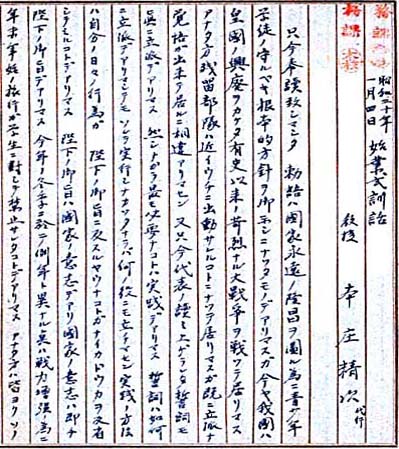 昭和二十年
一月四日　始業式訓話
教授　本庄精次　代行
只今奉読致シマシタ　勅語ハ国家永遠ノ隆昌ヲ圖ル為ニ青少年
学徒ノ守ルベキ根本的方針ヲ御示シニナツタモノデアリマスガ今ヤ我國ハ
皇國ノ興廃ヲカケタ有史以来ノ苛烈ナル大戦争ヲ戦ツテ居リマス
アナタ方残留部隊ハ近イウチニ出動サレルコトニナツテ居リマスガ既ニ立派ナ
覚悟ガ出来テ居ルニ相違アリマセン　又只今代表ノ読ミ上ゲマシタ誓詞モ
誠ニ立派デアリマス　然シナガラ最モ必要ナコトハ実践デアリマス　誓詞ハ如何
ニ立派デアリマシテモ　ソレヲ実行シナカツタナラバ何ノ役ニモ立チマセン　実践ノ方法
ハ自分ノ日々ノ行為ガ　陛下ノ御旨ニ反スルヤウナコトガナイカドウカヲ反省
シテミルコトデアリマス　陛下ノ御旨ハ國家ノ意志デアリ國家ノ意志ハ即チ
陛下ノ御旨デアリマス　今年ノ冬季ニ於テ例年ト異ナル点ハ戦力増強ノ為ニ
年末年始ノ旅行ガ学生ニ対シテ禁止サレタコトデアリマス　アナタ方ハ皆ヨクソノ